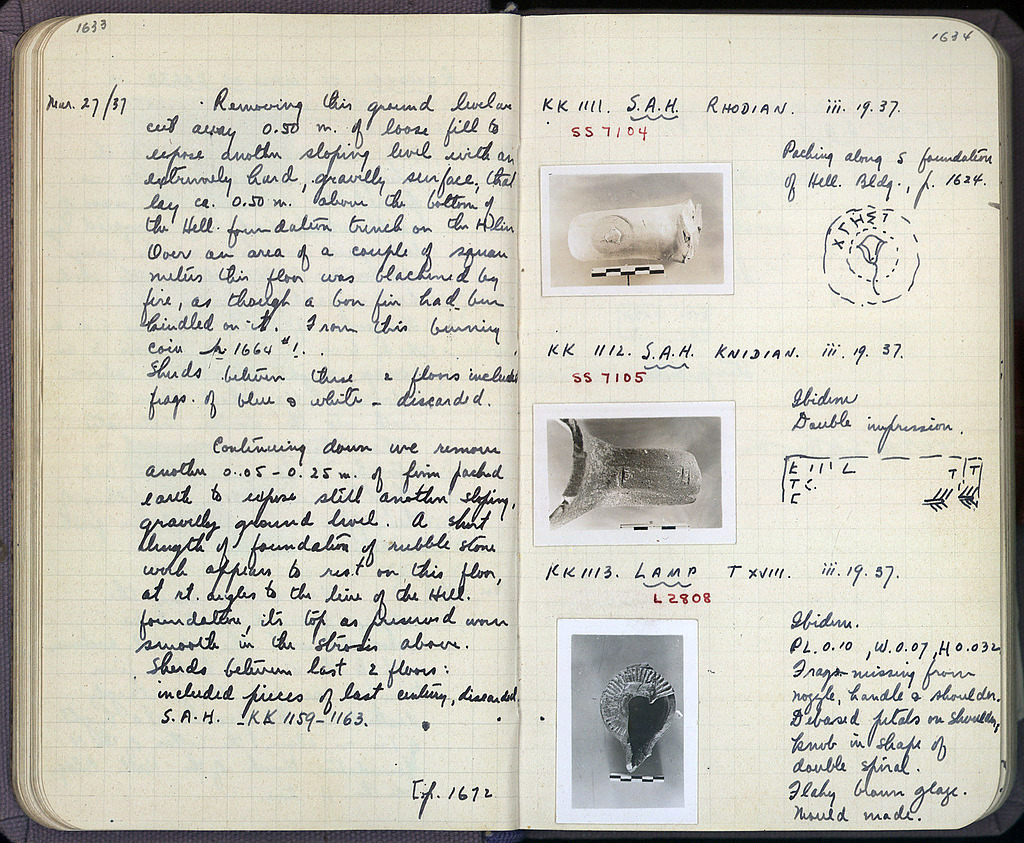 1633
Mar. 27/37
Removing this ground level we
cut away 0.50 m. of loose fill to
expose another sloping level with an
extremely hard, gravelly surface, that
lay ca. 0.50 m. above the bottom of
the Hell. foundation trench on the H line
Over an area of a couple of square
meters this floor was blackened by
fire, as though a bon fire had been
kindled on it. From this burning
coin p 1664 #1.
Sherds between these 2 floors included
frags. of blue & white – discarded.
Continuing down we remove
another 0.05 – 0.25 m. of firm packed
earth to expose still another sloping,
gravelly ground level. A short
length of foundation of rubble stone
work appears to rest on this floor,
at rt. angles to the line of the Hell.
foundation, its top as preserved worn
smooth in the strosis above.
Sherds between last 2 floors:
included pieces of last century, discarded.
S.A.H. – KK 1159–1163.
[p. 1672
1634
KK 1111. S.A.H. RHODIAN. iii. 19. 37.
SS 7104
Packing along S foundation
of Hell. Bldg., p. 1624.
ΧΓΗΣΤ
KK 1112. S.A.H. KNIDIAN. iii. 19. 37.
SS 7105
Ibidem
Double impression.
E I I I L T T
T C
C
KK 1113. LAMP T XVIII. iii. 19. 37.
L 2808
Ibidem.
P.L. 0.10, W. 0.07, H 0.032
Frags missing from
nozzle, handle & shoulder.
Debased petals on shoulder,
knob in shape of
double spiral.
Flaky brown glaze.
Mould made.